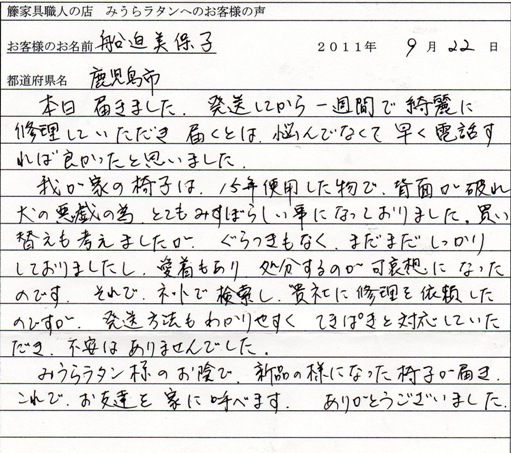 籐家具職人の店 みうらラタンへのお客様の声
お客様のお名前 船迫美保子 2011年 9月 22日
都道府県名 鹿児島市
本日 届きました. 発送してから 一週間で 綺麗に
修理していただき 届くとは, 悩んでなくて 早く 電話す
れば 良かったと思いました.
我が家の椅子は, 15年使用した物で, 背面が破れ
犬の悪戯の為, とてもみすぼらしい事になっておりました. 買い
替えも考えましたが ぐらつきもなく, まだまだ しっかり
しておりましたし, 愛着もあり, 処分するのが可哀想になった
のです. それで, ネットで検索し, 貴社に修理を依頼した
のですが, 発送方法もわかりやすく てきぱきと対応していた
だき, 不安は ありませんでした.
みうらラタン様のお陰で, 新品の様になった椅子が届き,
これで, お友達を 家に呼べます. ありがとうございました.